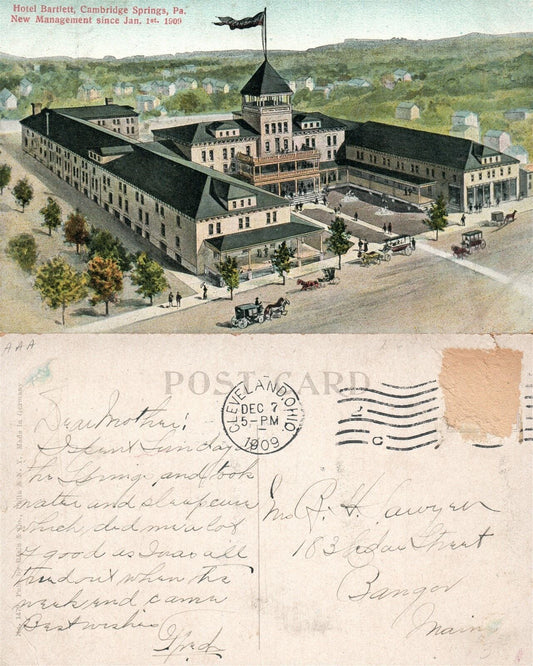 Hotel Bartlett, Cambridge Springs, Pa.
New Management since Jan. 1st. 1909
AAA
POST CARD
CLEVELAND, OHIO
DEC 7
5-PM
1909
Made in Germany
Dear Mother;
I spent Sunday
the Springs and took
water and sleep cure
which did me a lot
of good as I was all
tired out when the
week end came
Best wishes
Fred
Mrs R. H. Sawyer
183 Cedar Street
Bangor
Maine